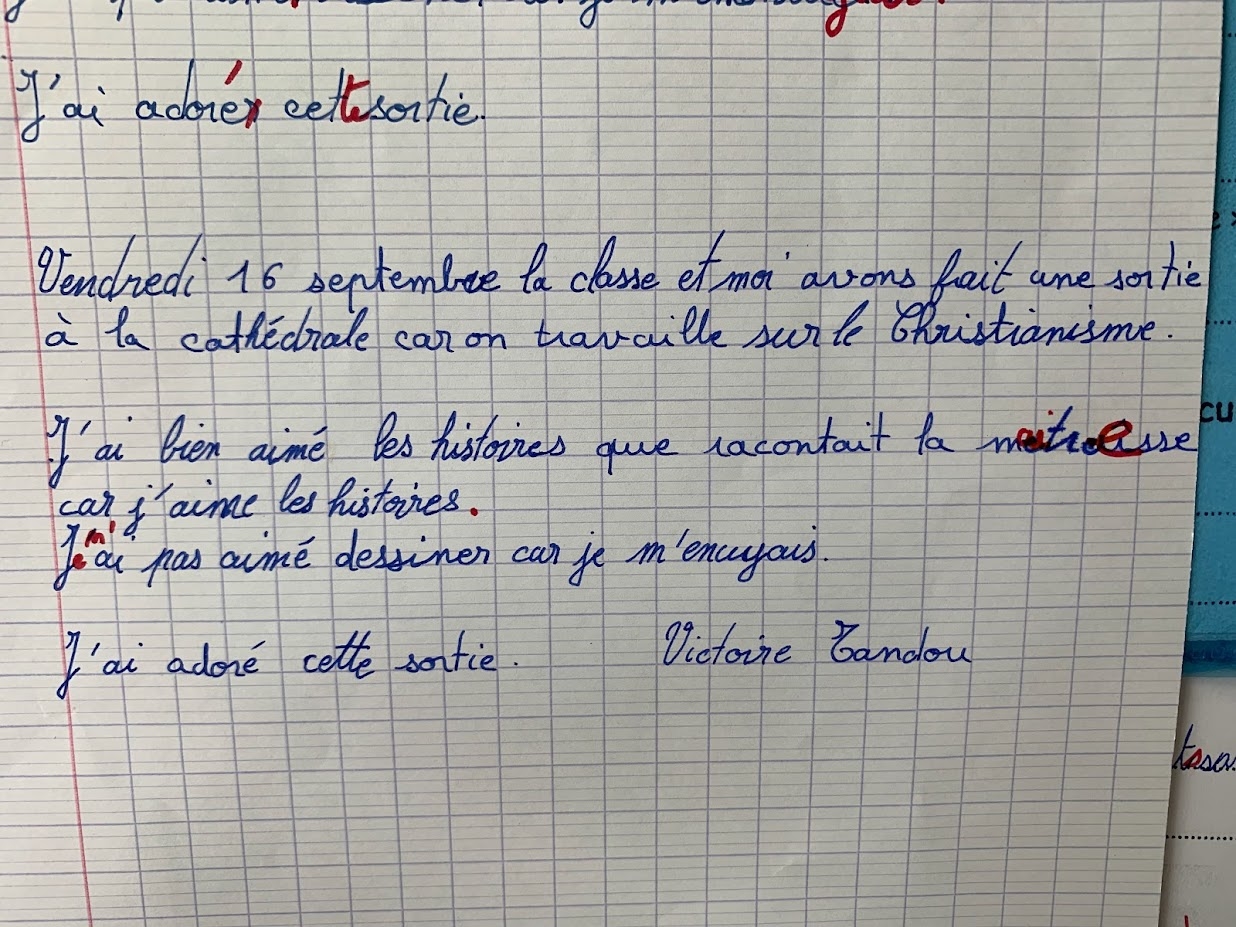 J'ai adoré cette sortie.
Vendredi 16 septembre la classe et moi avons fait une sortie
à la cathédrale car on travaille sur le Christianisme.
J'ai bien aimé les histoires que racontait la maitresse
car j'aime les histoires.
Je n'ai pas aimé dessiner car je m'enuyais.
J'ai adoré cette sortie. Victoire Tandou
cu